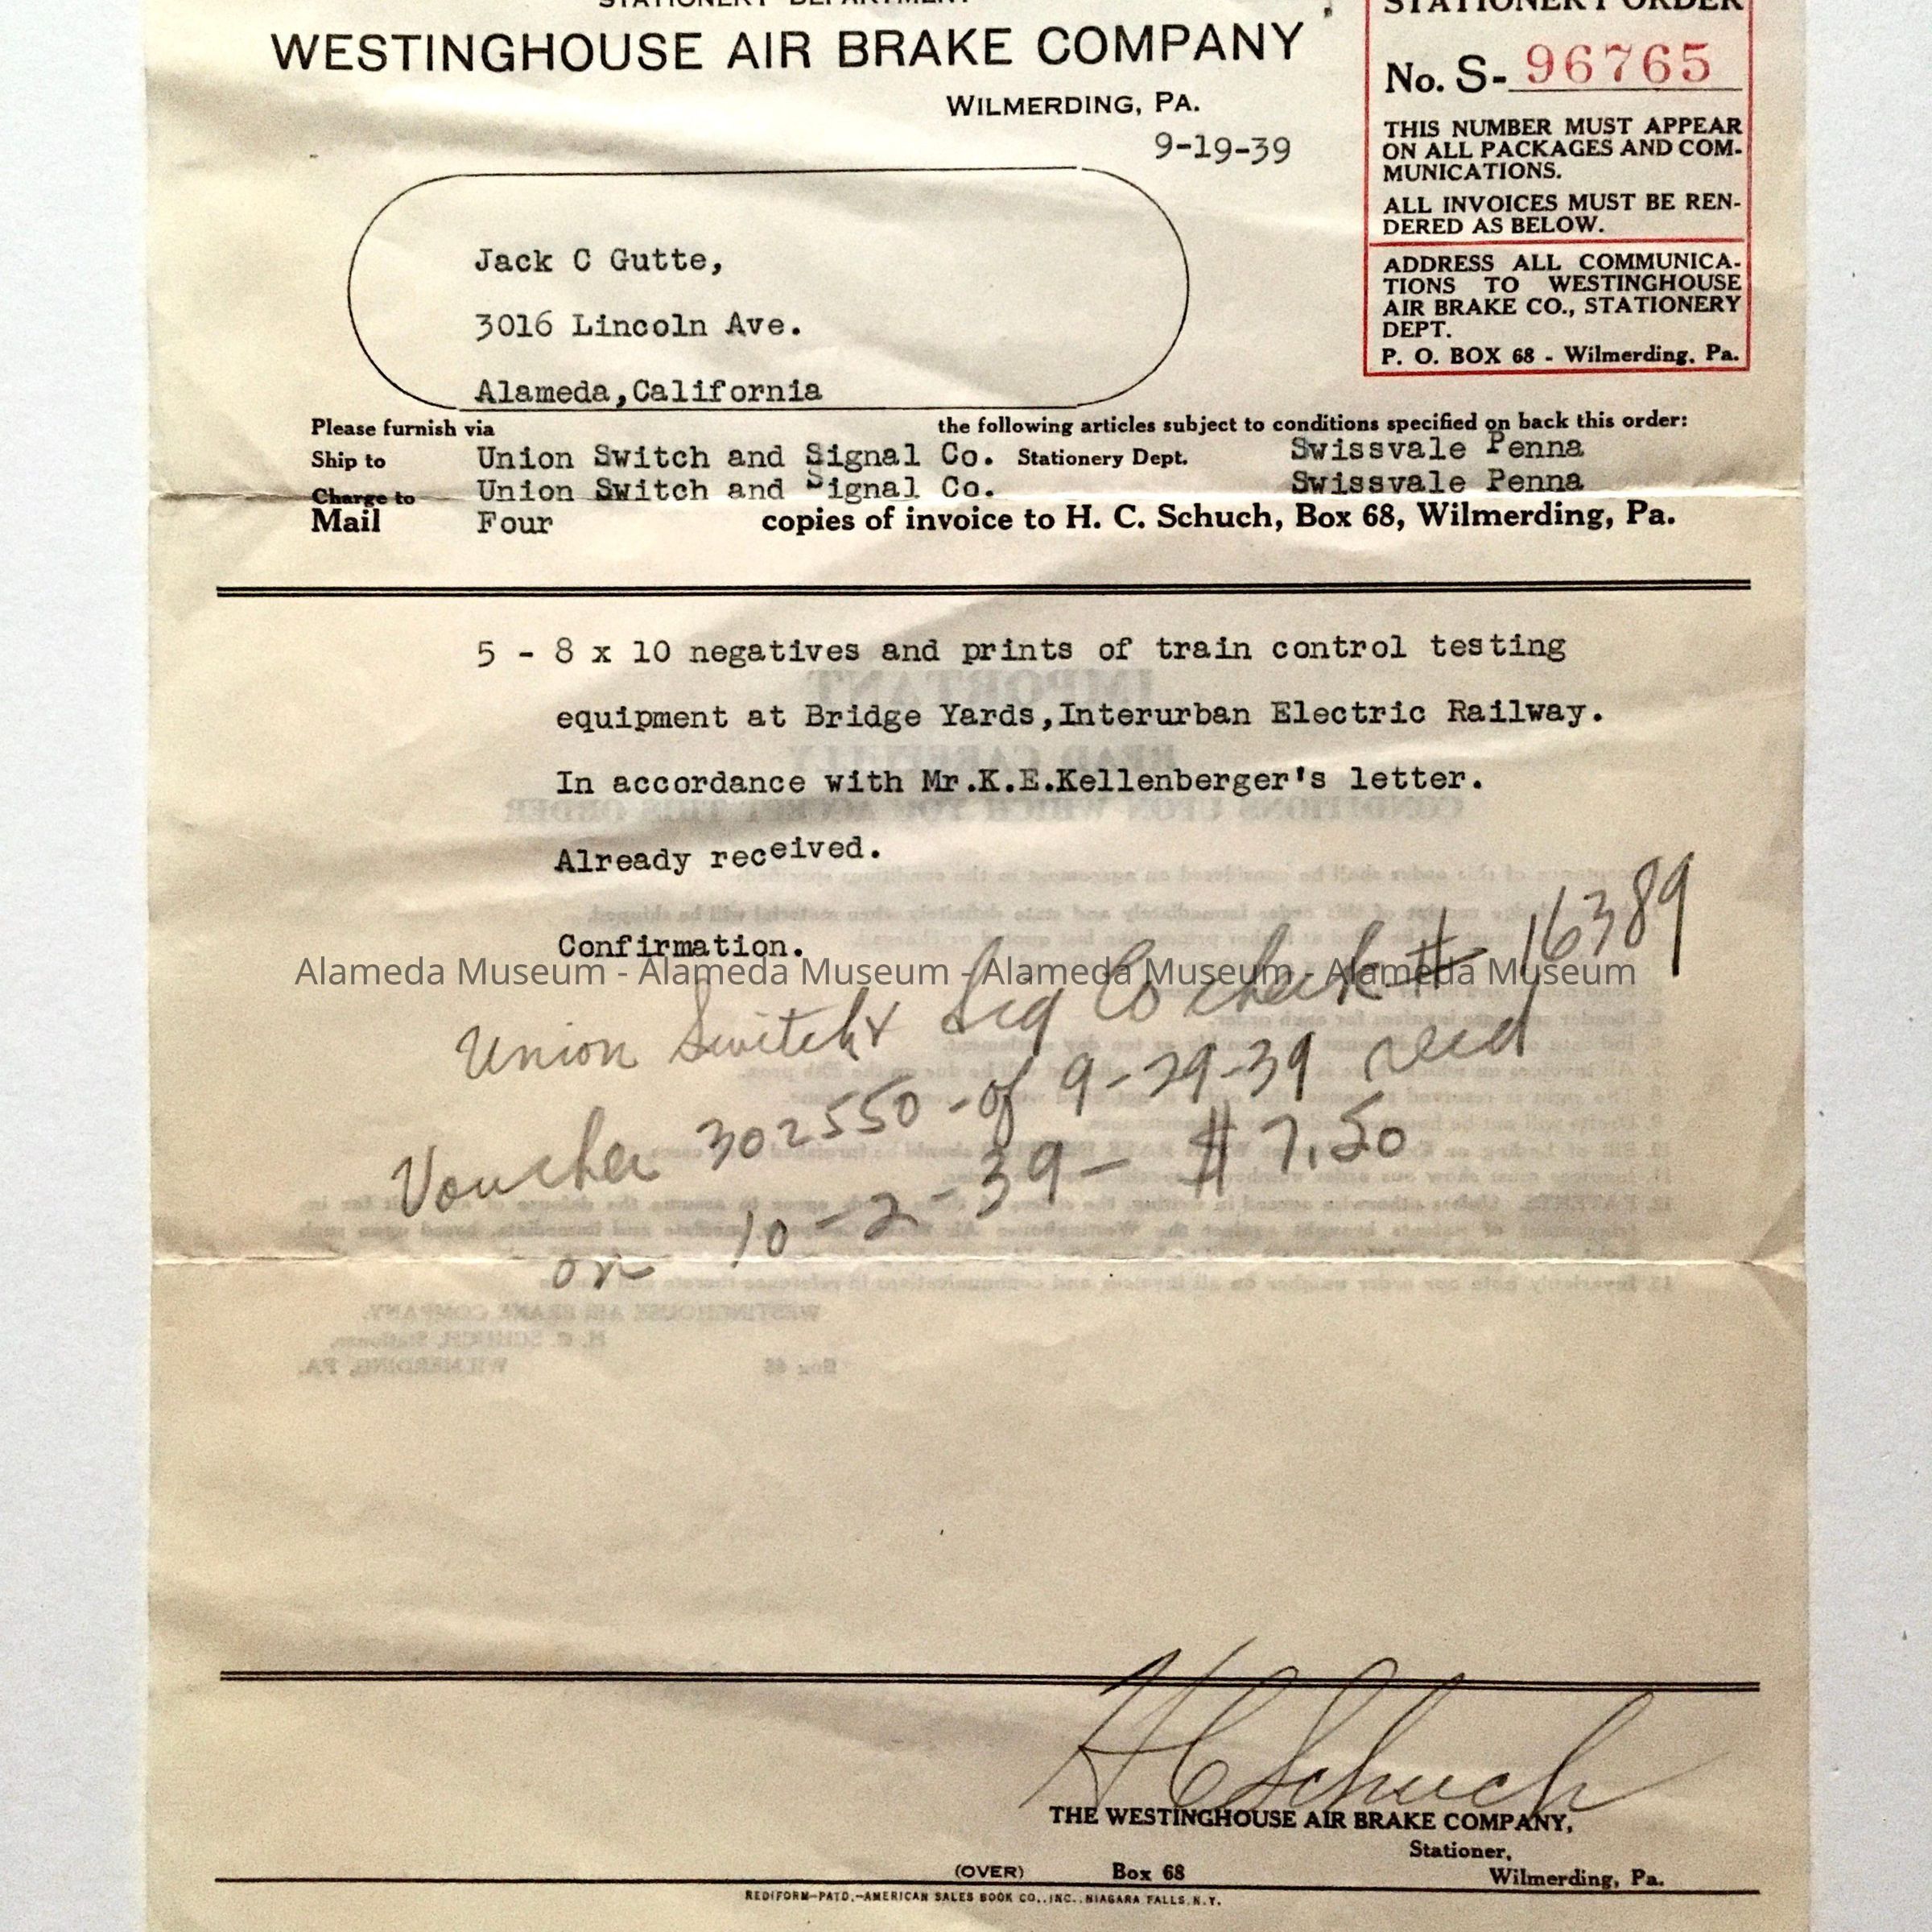 STATIONERY DEPARTMENT
WESTINGHOUSE AIR BRAKE COMPANY
WILMERDING, PA.
9-19-39
STATIONERY ORDER
No. S- 96765
THIS NUMBER MUST APPEAR
ON ALL PACKAGES AND COM-
MUNICATIONS.
ALL INVOICES MUST BE REN-
DERED AS BELOW.
ADDRESS ALL COMMUNICA-
TIONS TO WESTINGHOUSE
AIR BRAKE CO., STATIONERY
DEPT.
P. O. BOX 68 - Wilmerding, Pa.
Jack C Gutte,
3016 Lincoln Ave.
Alameda,California
Please furnish via the following articles subject to conditions specified on back this order:
Ship to Union Switch and Signal Co. Stationery Dept. Swissvale Penna
Charge to Union Switch and Signal Co. Swissvale Penna
Mail Four copies of invoice to H. C. Schuch, Box 68, Wilmerding, Pa.
5 - 8 x 10 negatives and prints of train control testing
equipment at Bridge Yards,Interurban Electric Railway.
In accordance with Mr.K.E.Kellenberger's letter.
Already received.
Confirmation.
Alameda Museum - Alameda Museum - Alameda Museum - Alameda Museum
Union Switch & Sig Co check # 16389
Voucher 302550 - of 9-29-39 recd
on 10-2-39- $7.50
H C Schuch
THE WESTINGHOUSE AIR BRAKE COMPANY,
Stationer,
(OVER) Box 68 Wilmerding, Pa.
REDIFORM-PATD.-AMERICAN SALES BOOK CO., INC., NIAGARA FALLS, N.Y.